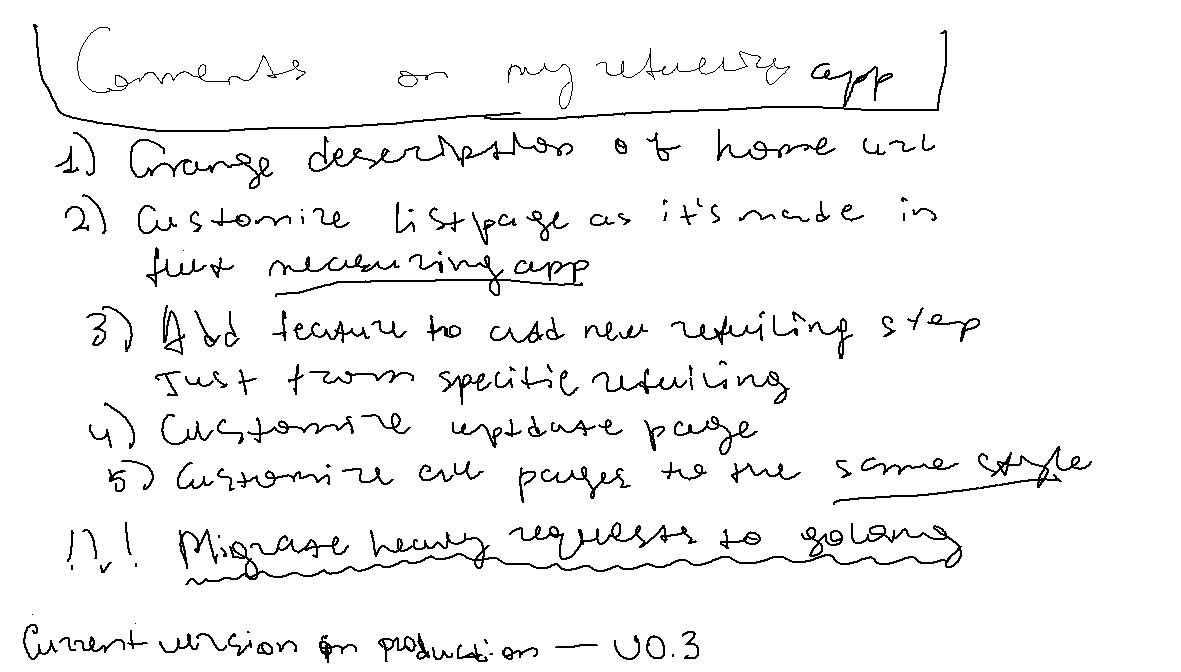 Coments on my app
1) Change description of home url
2) Customize list page as it's made in
measuring app
3) Add feature to add new retailing step
Just from specific retailing
4) Customize uptdate page
5) Customize all pages to the same style
!!! Migrate heavy requests to golang
Current version on production — v0.3